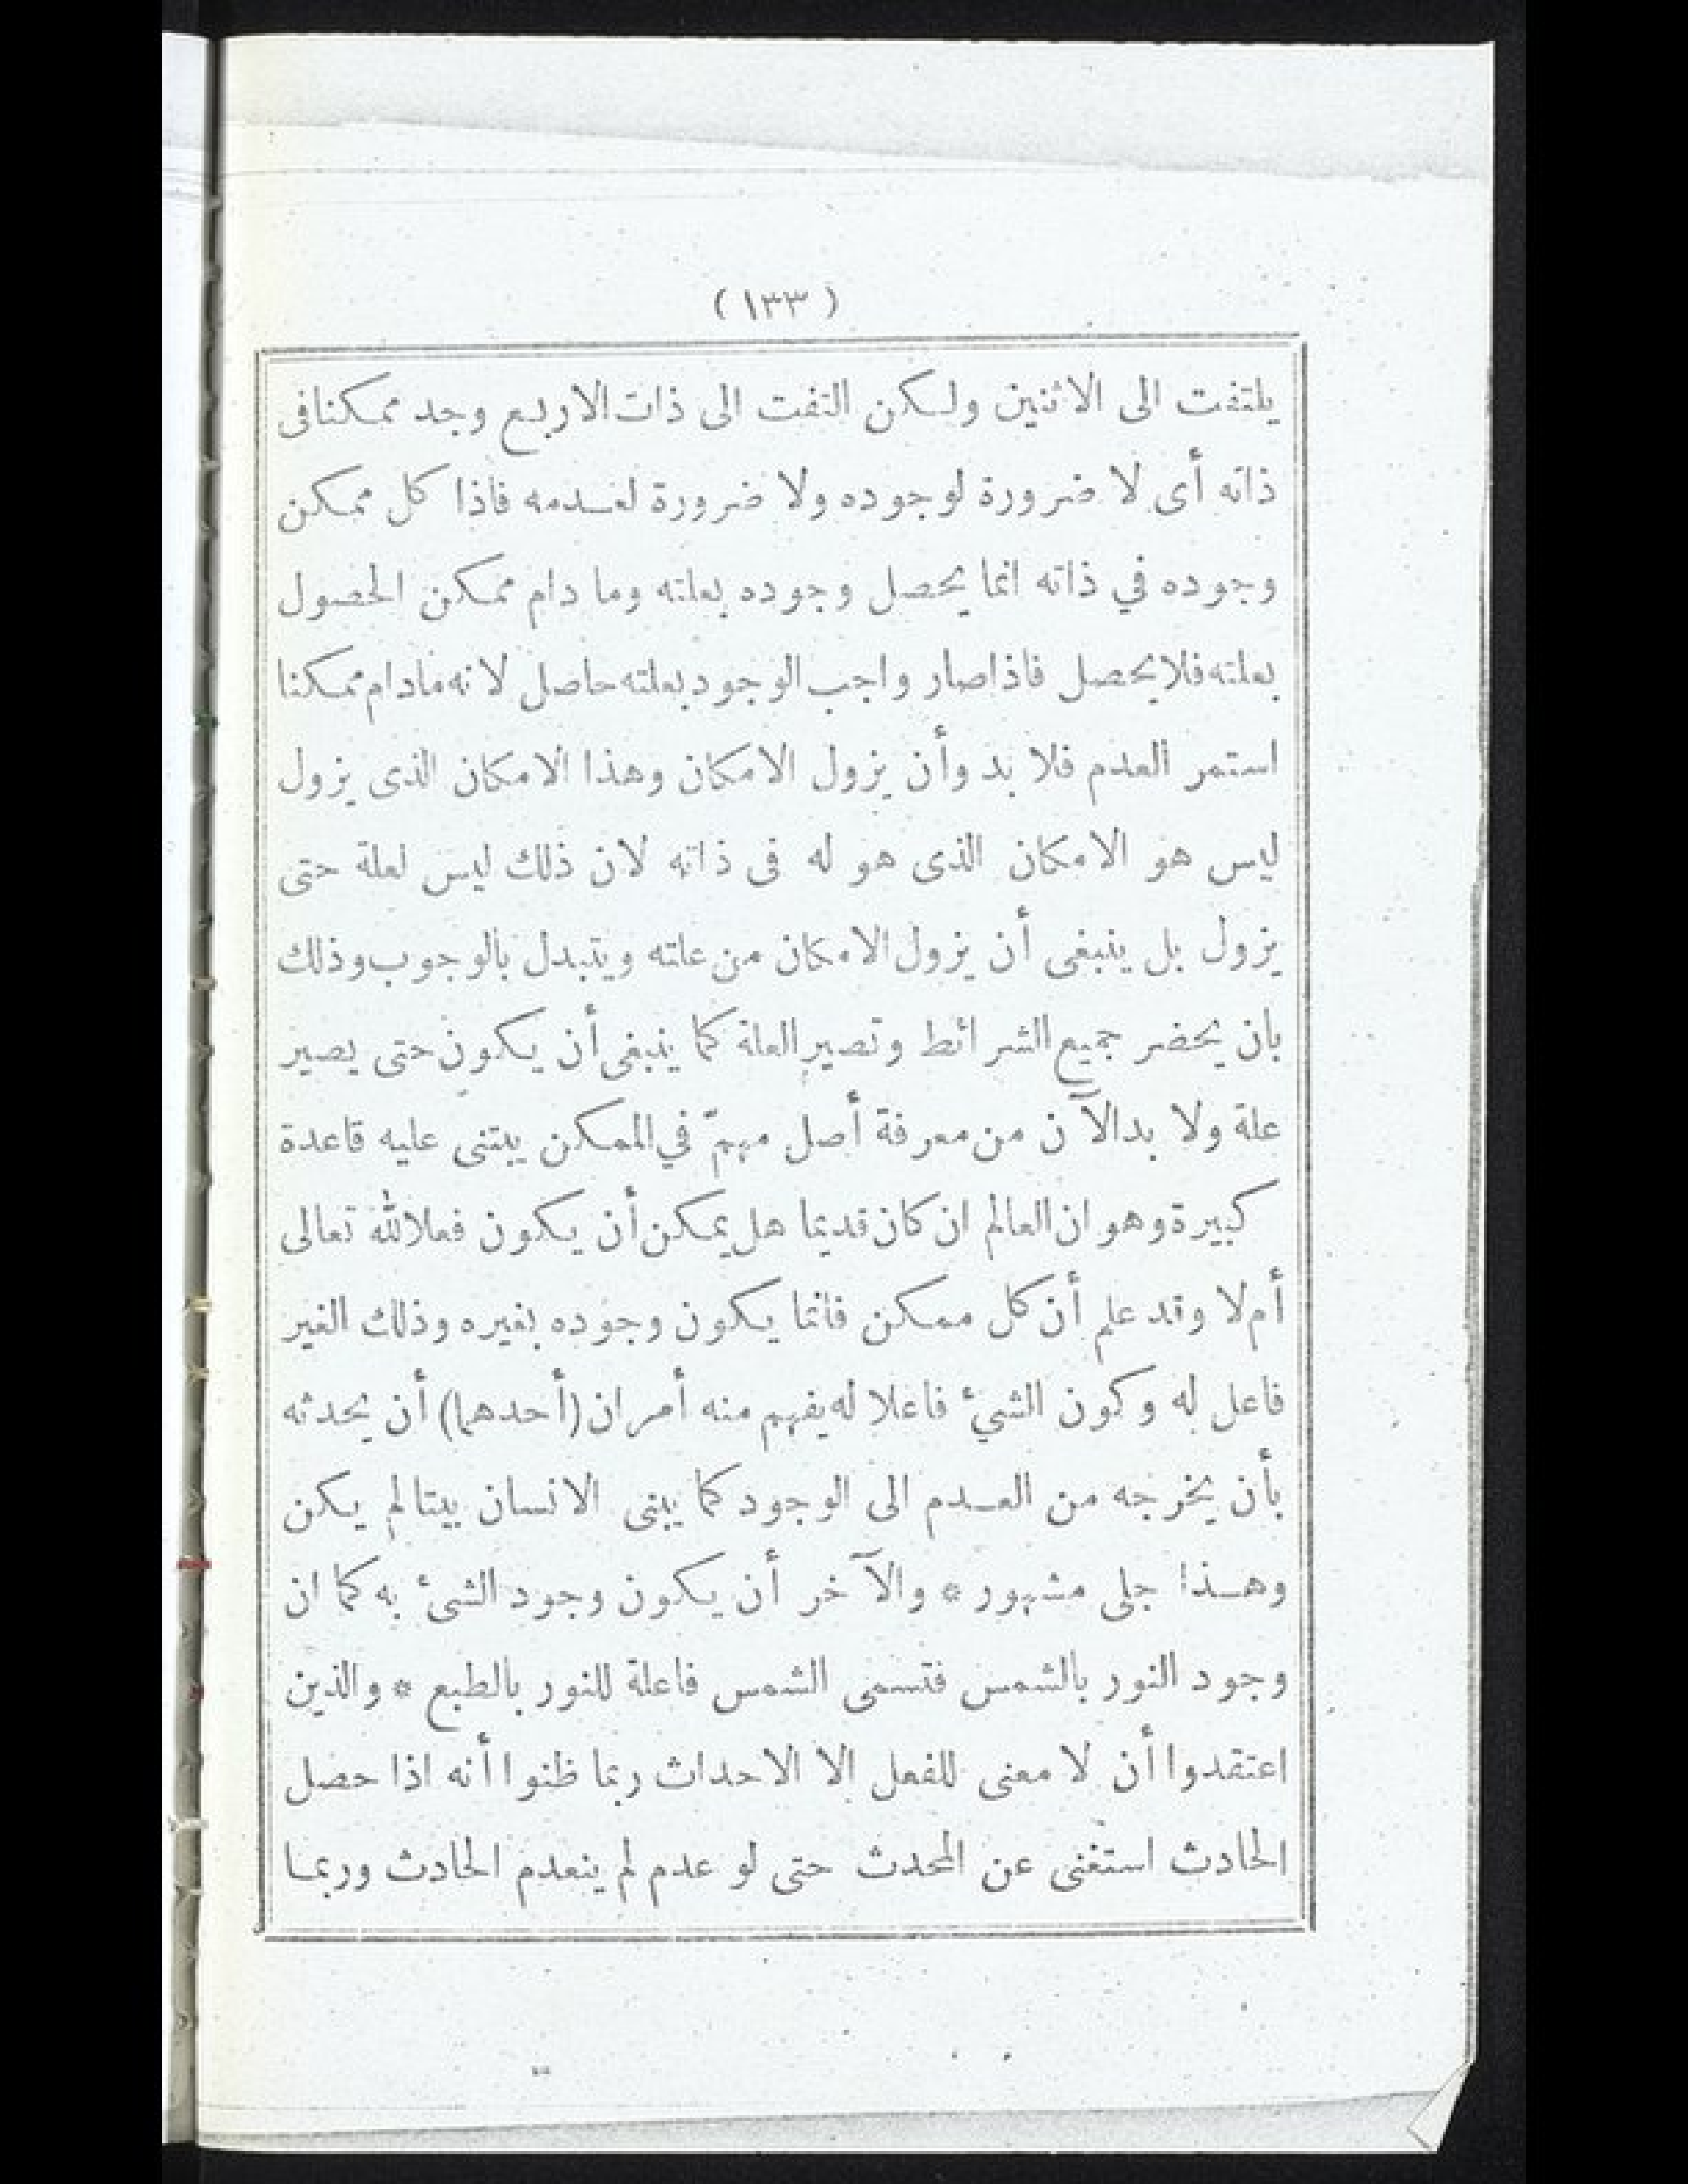 (١٣٣)
يلتفت الى الاثنين ولكن التفت الى ذات الاربع وجد ممكنا فى
ذاته أى لا ضرورة لوجوده ولا ضرورة لعدمه فاذا كل ممكن
وجوده في ذاته انما يحصل وجوده بعلته وما دام ممكن الحصول
بعلته فلا يحصل فاذا صار واجب الوجود بعلته حاصل لانه ما دام ممكنا
استمر العدم فلا بد وأن يزول الامكان وهذا الامكان الذى يزول
ليس هو الامكان الذى هو له فى ذاته لان ذلك ليس لعلة حتى
يزول بل ينبغى أن يزول الامكان من علته ويتبدل بالوجوب وذلك
بان يحضر جميع الشرائط وتصير العلة كما ينبغى أن يكون حتى يصير
علة ولا بد الآن من معرفة أصل مهمّ في الممكن يبتنى عليه قاعدة
كبيرة وهو ان العالم ان كان قديما هل يمكن أن يكون فعلا لله تعالى
أم لا وقد علم أن كل ممكن فانما يكون وجوده بغيره وذلك الغير
فاعل له وكون الشيء فاعلا له يفهم منه أمران (أحدهما) أن يحدثه
بأن يخرجه من العدم الى الوجود كما يبنى الانسان بيتا لم يكن
وهذا جلى مشهور * والآخر أن يكون وجود الشئ به كما ان
وجود النور بالشمس فتسمى الشمس فاعلة للنور بالطبع * والذين
اعتقدوا أن لا معنى للفعل الا الاحداث ربما ظنوا أنه اذا حصل
الحادث استغنى عن المحدث حتى لو عدم لم ينعدم الحادث وربما